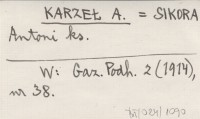 KARZEŁ A. = SIKORA
Antoni ks.
W: Gaz. Podh. 2 (1914),
nr 38.